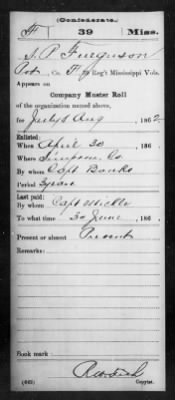 (Confederate.)
F 39 Miss.
S. P. Furguson
Pvt, Co. F, 39 Reg't Mississippi Vols.
Appears on
Company Muster Roll
of the organization named above,
for July & Aug, 1862.
Enlisted:
When April 30, 186
Where Simpson Co
By whom Capt Banks
Period 3 years
Last paid:
By whom Capt
To what time 30 June, 186
Present or absent Present
Remarks:
Book mark:
(642) Copyist.